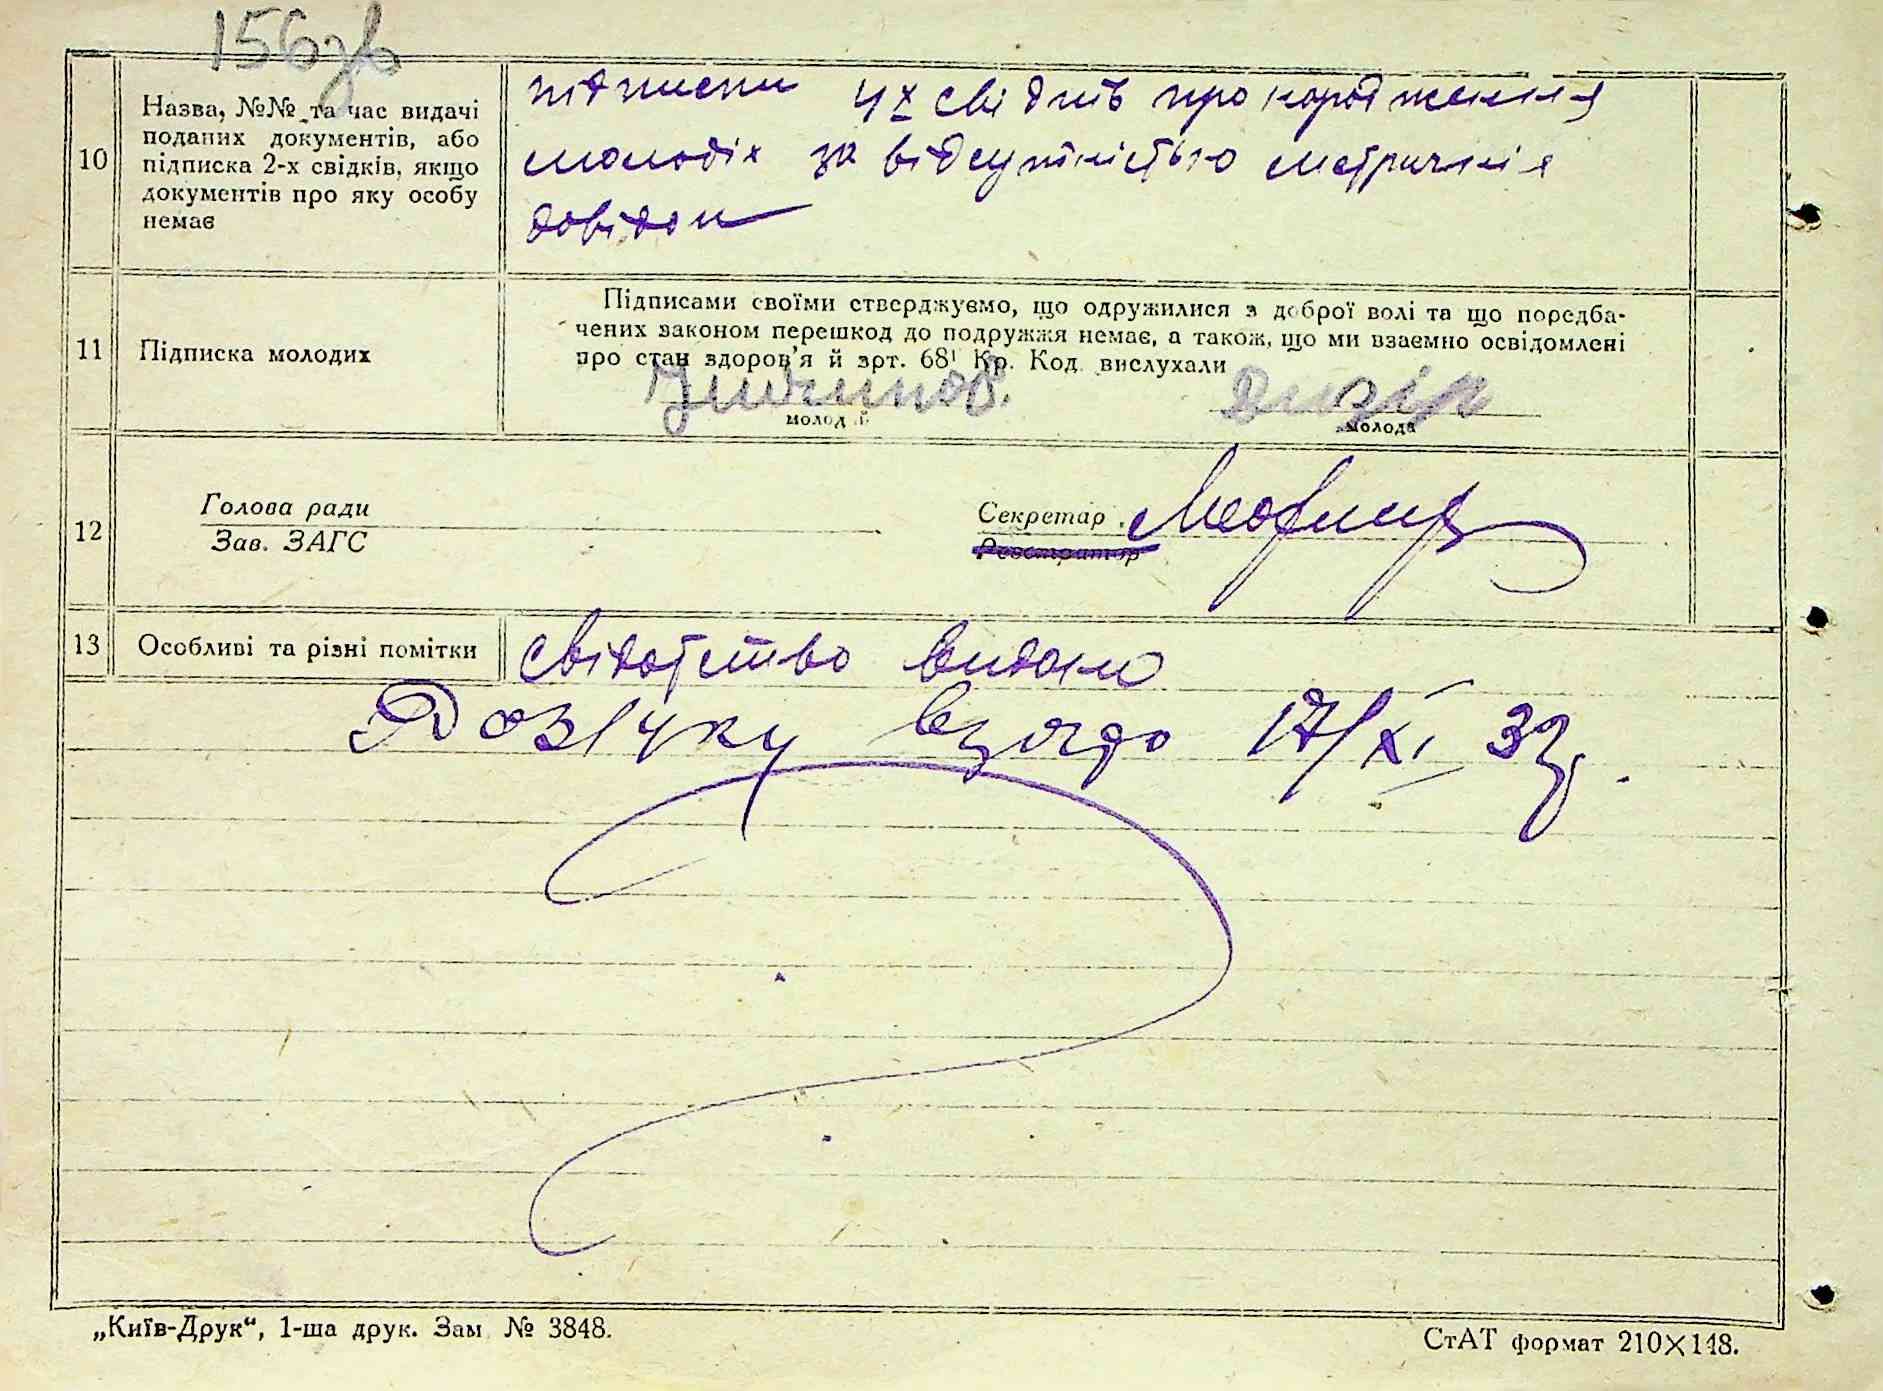 156зв
10
Назва, №№ та час видачі
поданих документів, або
підписка 2-х свідків, якщо
документів про яку особу
немає
підписки 4х свідків про народження
молодіх за відсутністью метричнія
довідок
11
Підписка молодих
Підписами своїми стверджуємо, що одружилися з доброї волі та що передба-
чених законом перешкод до подружжя немає, а також, що ми взаємно освідомлені
про стан здоров'я й арт. 68¹ Кр. Код. вислухали
молодий
молода
12
Голова ради
Зав. ЗАГС
Секретар
Реєстратор
13
Особливі та різні помітки
Свідотство видано
взято 17/XI 32
„Київ-Друк“, 1-ша друк. Зам № 3848.
СтАТ формат 210×148.